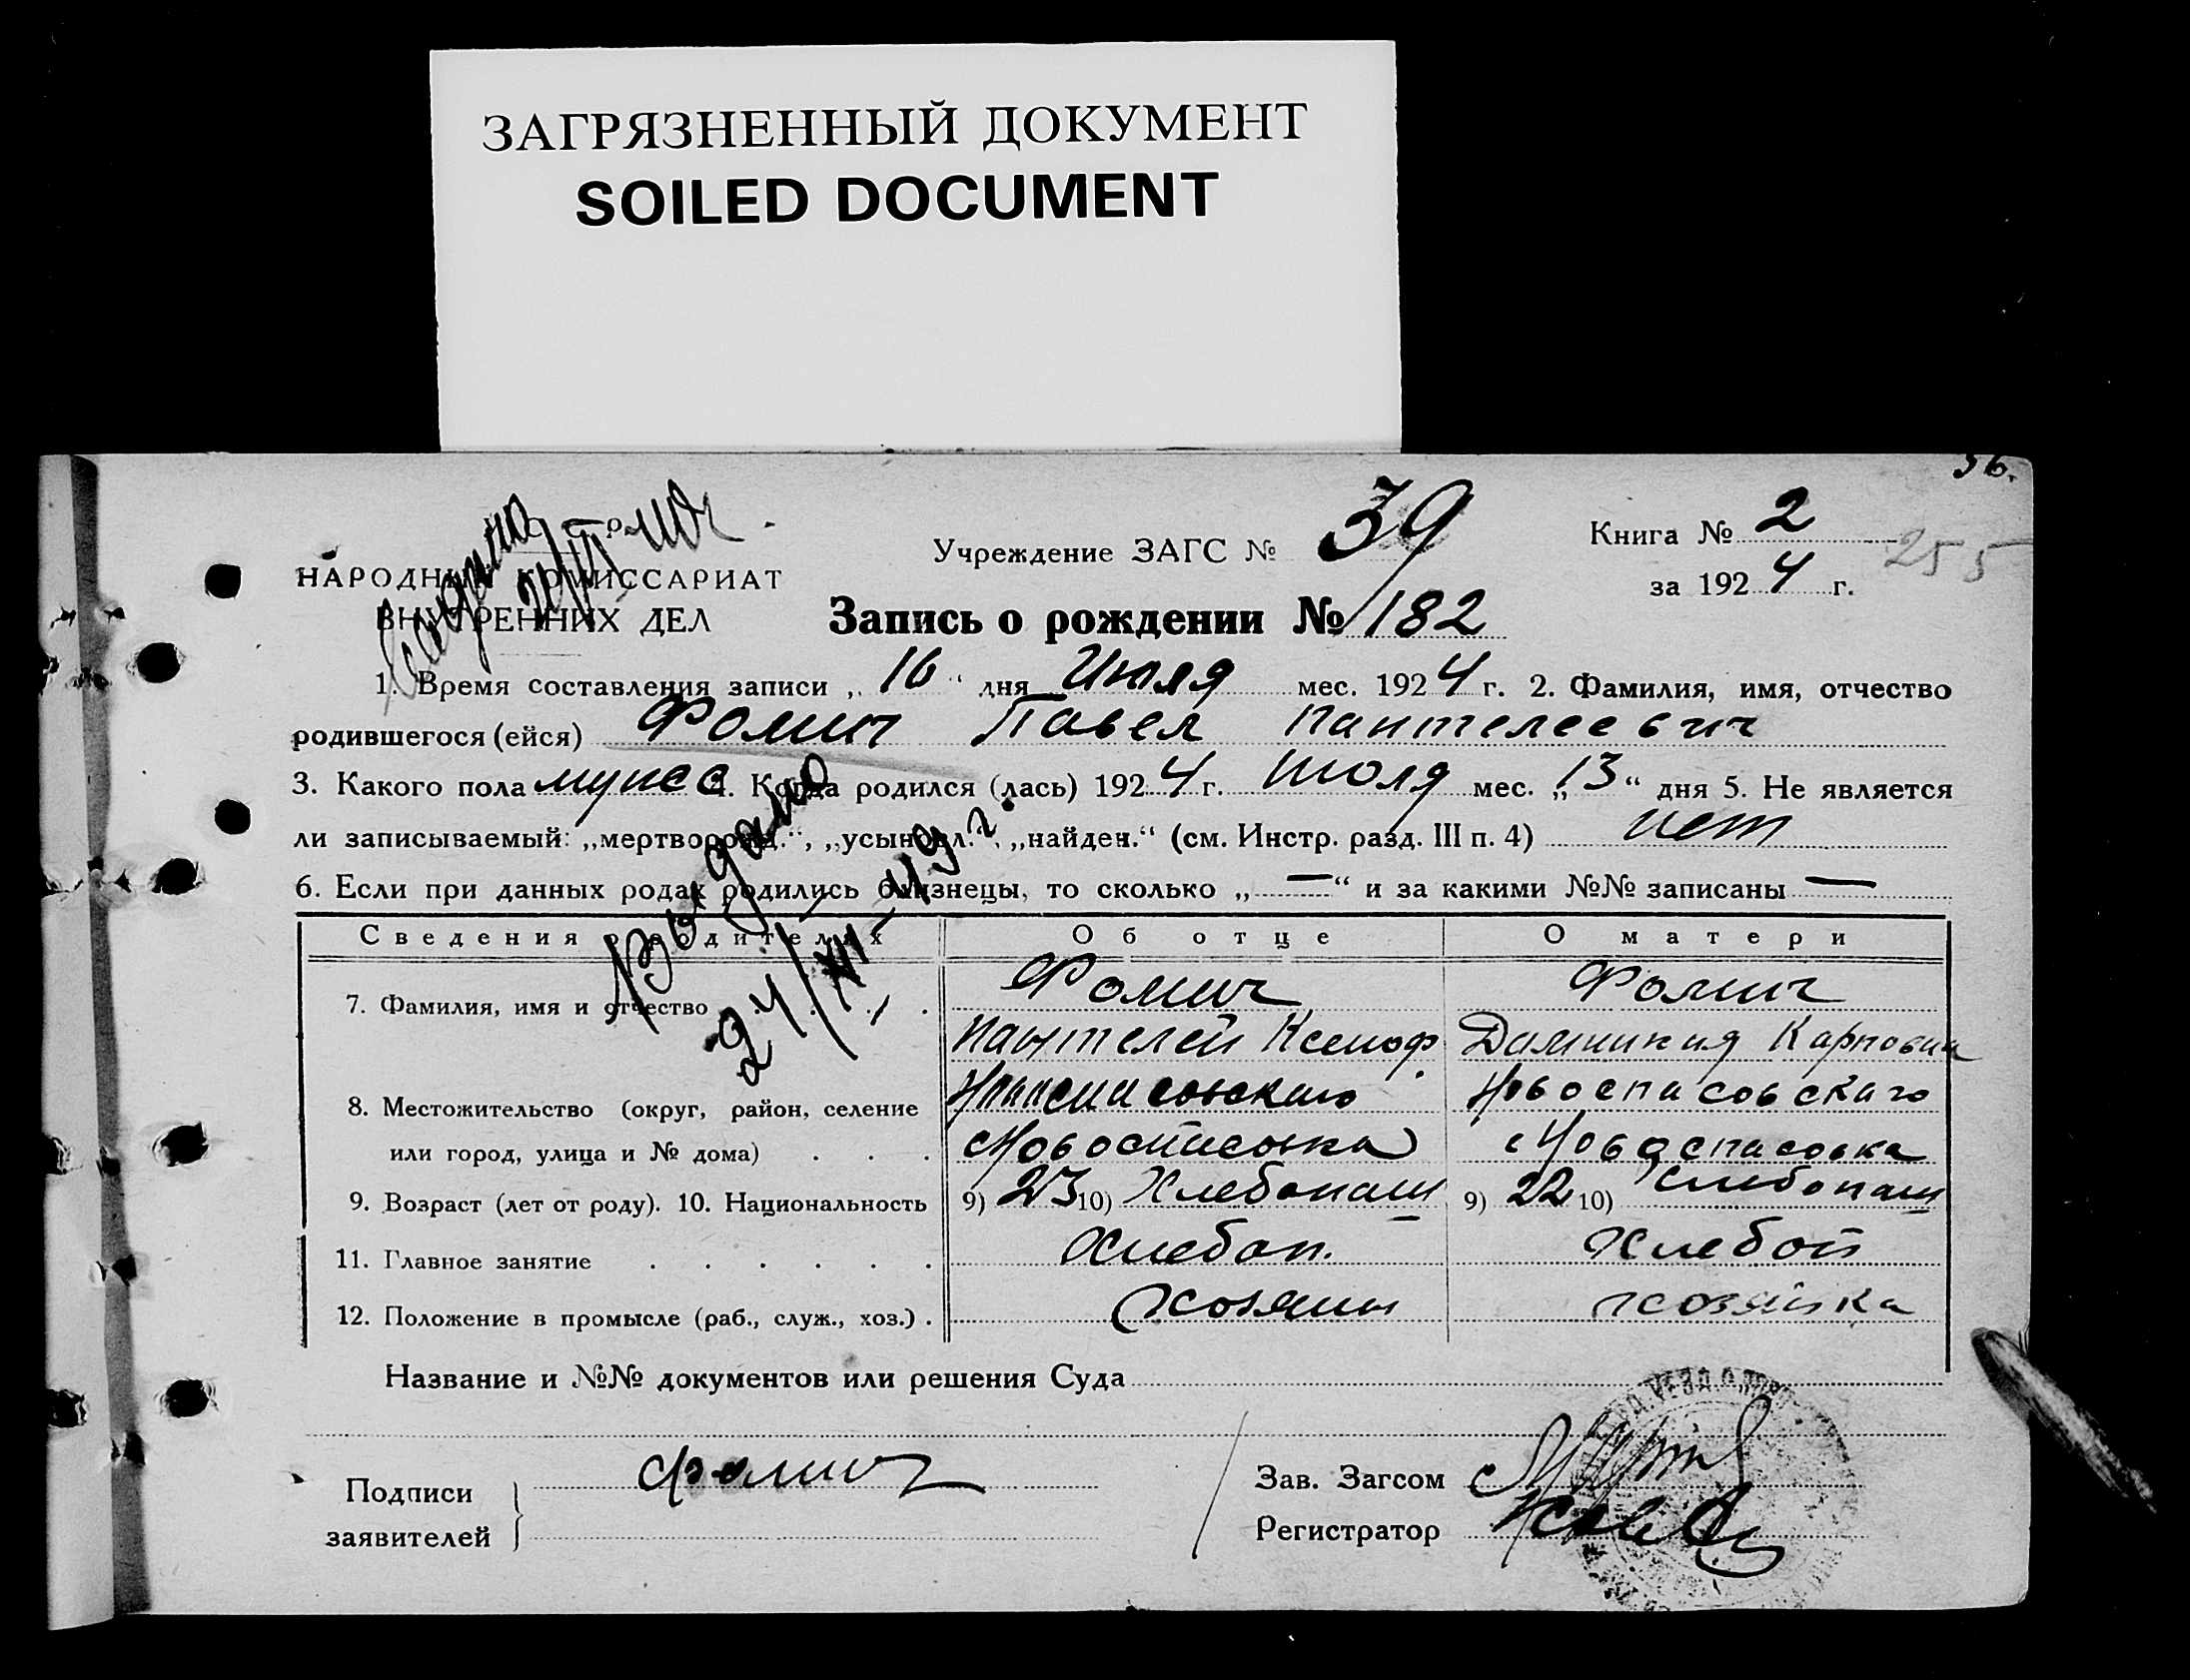 ЗАГРЯЗНЕННЫЙ ДОКУМЕНТ
SOILED DOCUMENT
36.
Учреждение ЗАГС № 39
Книга № 2
255
за 1924 г.
НАРОДНЫЙ КОМИССАРИАТ
ВНУТРЕННИХ ДЕЛ
Запись о рождении № 182
1. Время составления записи „ 16 “ дня Июля мес. 1924 г. 2. Фамилия, имя, отчество
родившегося (ейся) Фомич Павел Пантелеевич
3. Какого пола мужс 4. Когда родился (лась) 1924 г. Июля мес. „13“ дня 5. Не является
ли записываемый: „мертворожд.“, „усыновл.“, „найден.“ (см. Инстр. разд. III п. 4) нет
6. Если при данных родах родились близнецы, то сколько „—“ и за какими №№ записаны —
Выдано
24/XII-49 г.
Сведения о родителях Об отце О матери
7. Фамилия, имя и отчество Фомич Фомич
Пантелей Ксеноф. Домникия Карповна
8. Местожительство (округ, район, селение Новоспасовскаго
или город, улица и № дома) Новоспасовка Новоспасовка
9. Возраст (лет от роду). 10. Национальность 9) 23 10) Хлебопаш 9) 22 10) Хлебопаш
11. Главное занятие Хлебоп. Хлебоп
12. Положение в промысле (раб., служ., хоз.) Хозяин хозяйка
Название и №№ документов или решения Суда
Подписи заявителей Фомич
Зав. Загсом
Регистратор